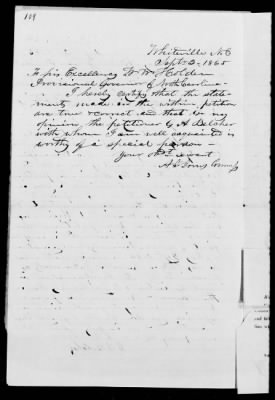 109
Whiteville N.C
Sept 3, 1865
To his Excellency W W Holden
Provisional Governor of North Carolina—
I hereby certify that the state-
ments made in the within petition
are true & correct and that in my
opinion the petitioner
with whom I am well acquainted is
worthy of a special pardon—
Your Obt Servt